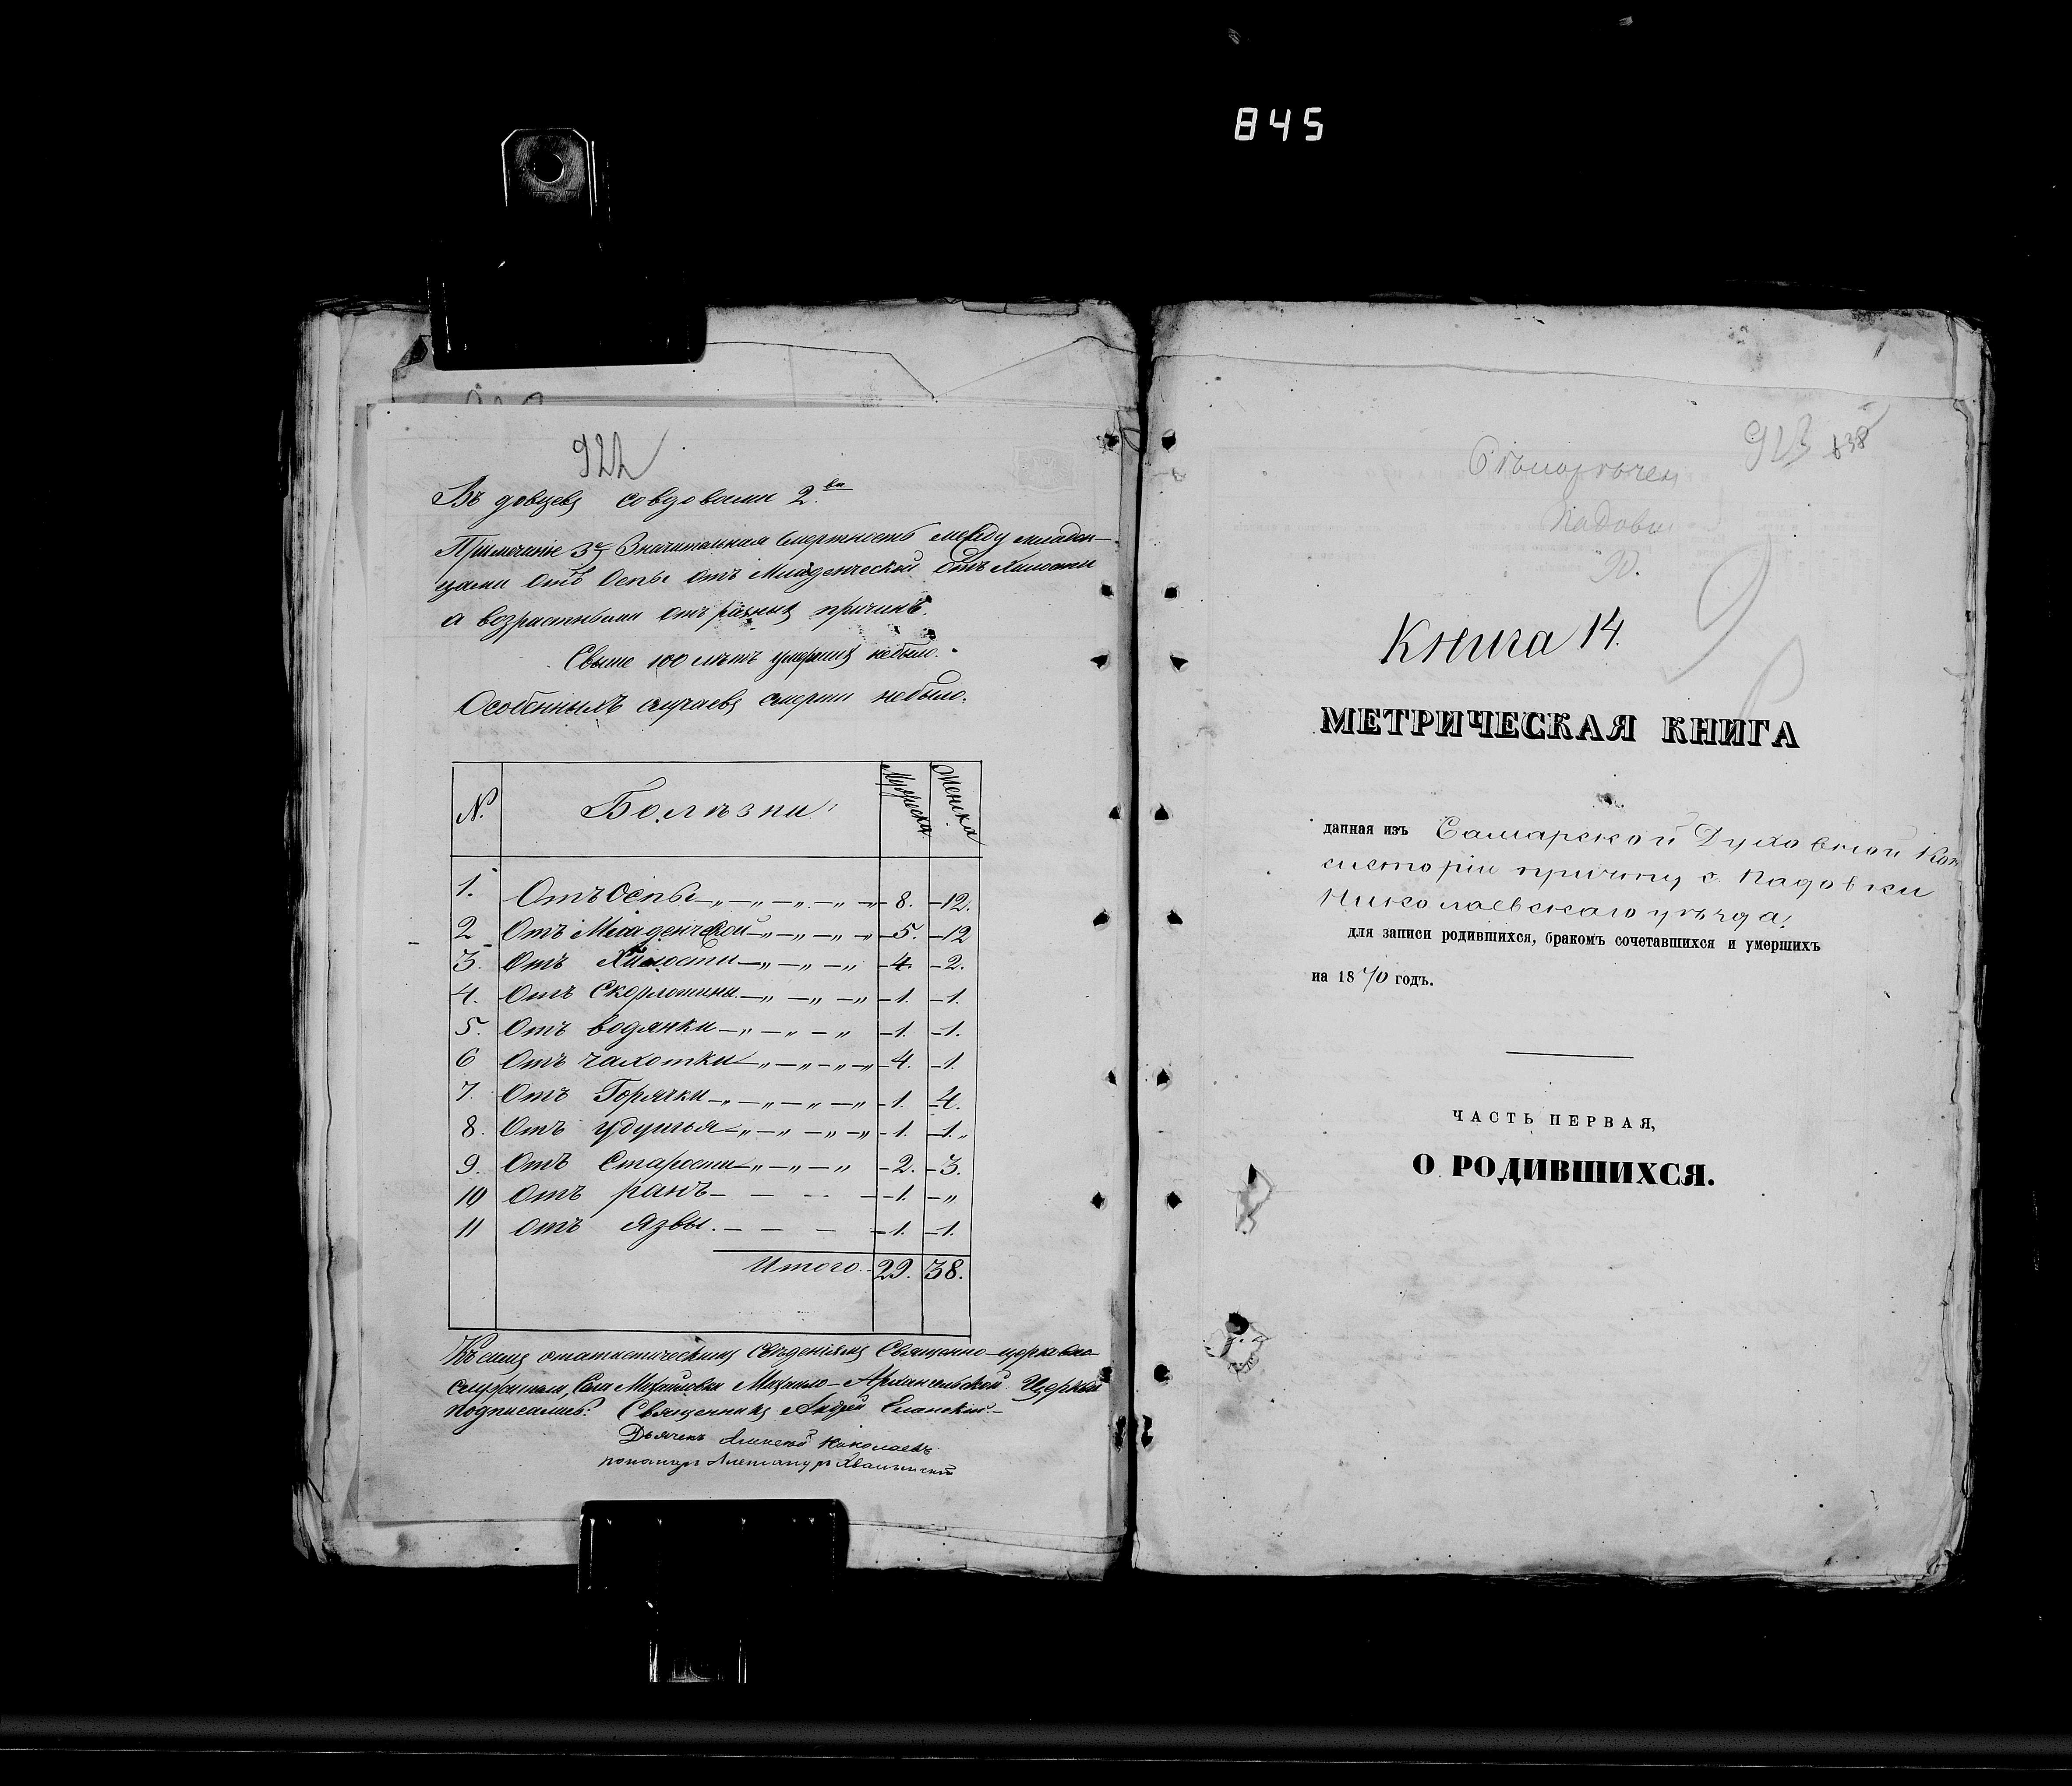 845
922
Въ довцевъ со вдовами 2.ва
Примечанiе 3е Значительная смертность между младен-
цами отъ Оспы отъ Младенческой отъ Хилости
а возрастными отъ разныхъ причинъ.
Свыше 100 лѣтъ умершихъ небыло.
Особенныхъ случаевъ смерти небыло.
№. Болѣзни Мужеска Женска
1. Отъ Оспы 8. 12.
2 Отъ Младенческой 5. 12
3. Отъ Хилости 4. 2.
4. Отъ Скорлотины 1. 1.
5. Отъ водянки 1. 1.
6 Отъ чахотки 4. 1.
7. Отъ Горячки 1. 4.
8. Отъ удушья 1. 1.
9. Отъ Старости 2. 3.
10 Отъ ранъ 1. „
11 отъ язвы. 1. 1.
Итого 29. 38.
Къ симъ статистическимъ Свѣденiямъ Священно-церковно-
служители, Села Михайловки Михаило-Архангельской Церкви
подписались: Священникъ Андрей Еланскiй
Дьячекъ Алексей Николаевъ
пономарь Александръ Хвалынскiй
923 838
Падовки
Книга 14.
МЕТРИЧЕСКАЯ КНИГА
данная изъ Самарской Духовной Кон
систорiи причту с. Падовки
Николаевскаго уѣзда,
для записи родившихся, бракомъ сочетавшихся и умершихъ
на 1870 годъ.
ЧАСТЬ ПЕРВАЯ,
О РОДИВШИХСЯ.